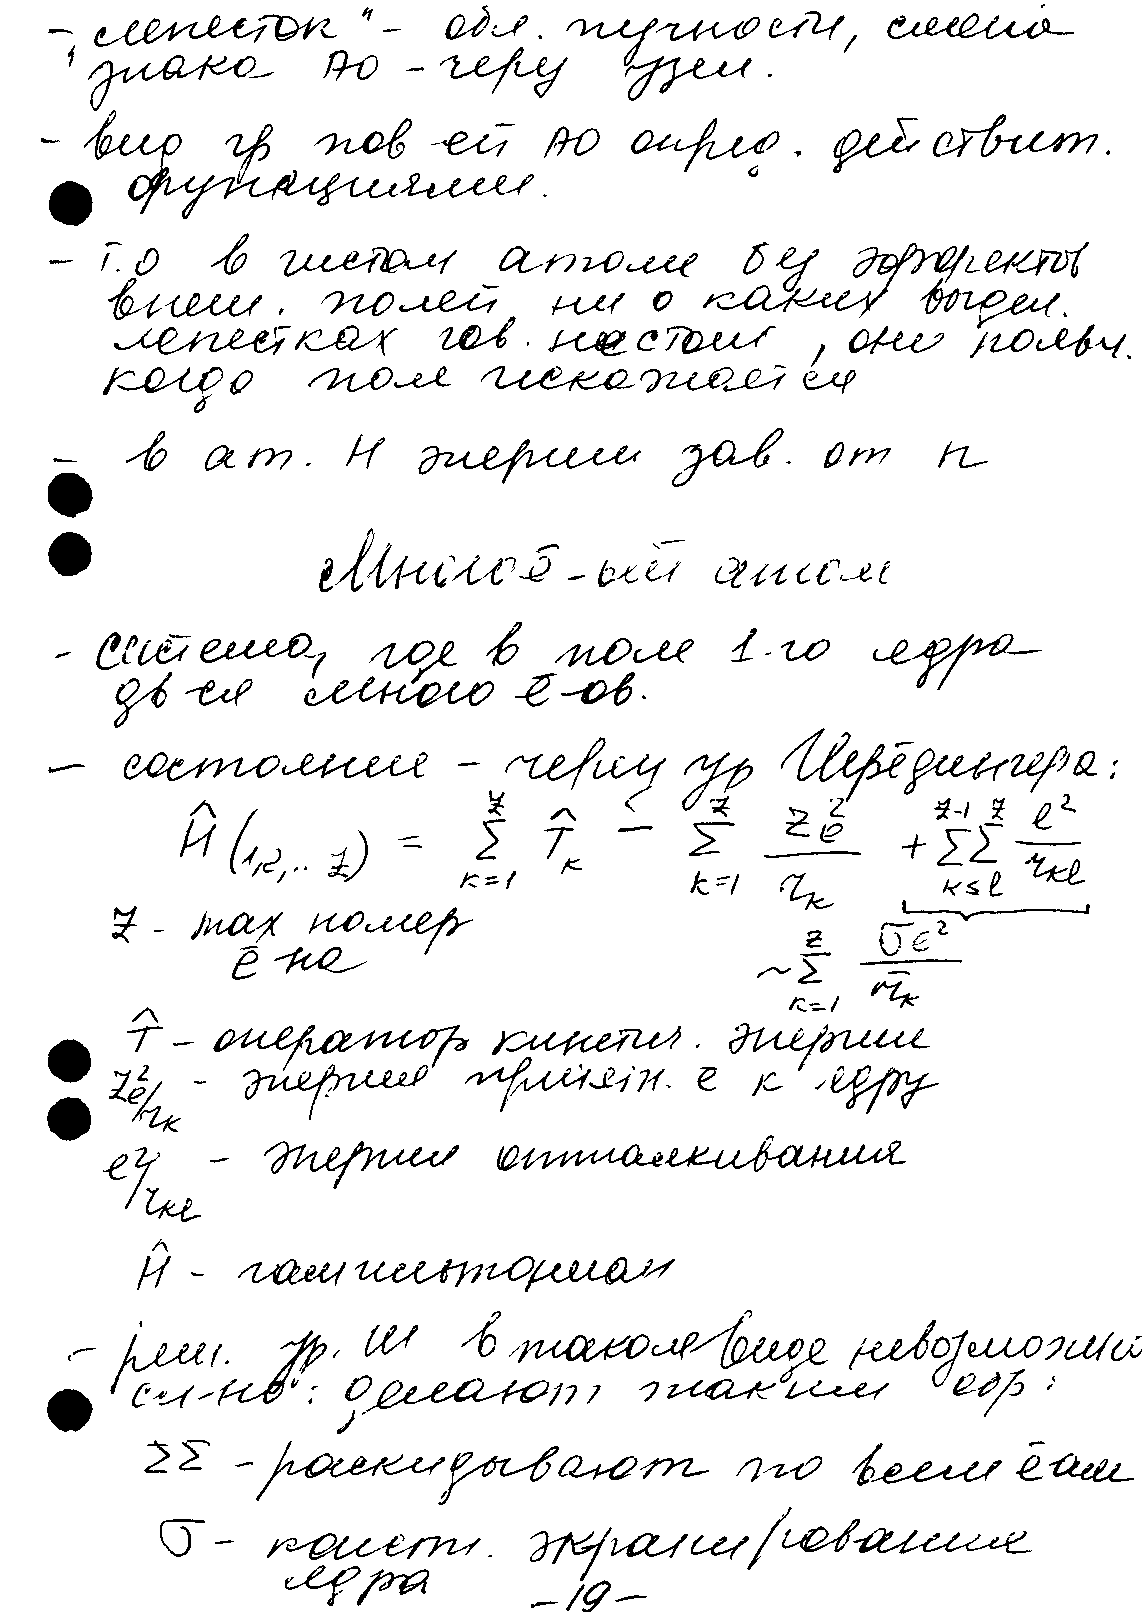 - „лепесток" - обл. пучности, смена
знака АО - через узел.
- вид гр пов-ей АО опред. действит.
функциями.
- т.о в чистом атоме без эффектов
внеш. полей ни о каких выдел.
лепестках гов. не стоит, они появл.
когда поле искажается
- в ат. Н энергии зав. от n
Многоē-ый атом
- система, где в поле 1-го ядра
дв-ся много ē-ов.
- состояние - через ур Шрёдингера:
Ĥ(1,2,..Z) = Σ_{k=1}^{Z} T̂_k - Σ_{k=1}^{Z} Ze²/r_k + Σ^{Z-1}Σ^{Z}_{k≤l} e²/r_{kl}
Z - max номер
ē на
~ Σ_{k=1}^{Z} σe²/r̄_k
T̂ - оператор кинетич. энергии
Ze²/r_k - энергия притяж. ē к ядру
e²/r_{kl} - энергия отталкивания
Ĥ - гамильтониан
- реш. ур. Ш в таком виде невозможно
сл-но: делают таким обр:
ΣΣ - раскидывают по всем ēам
σ - конст. экранирования
ядра
-19-